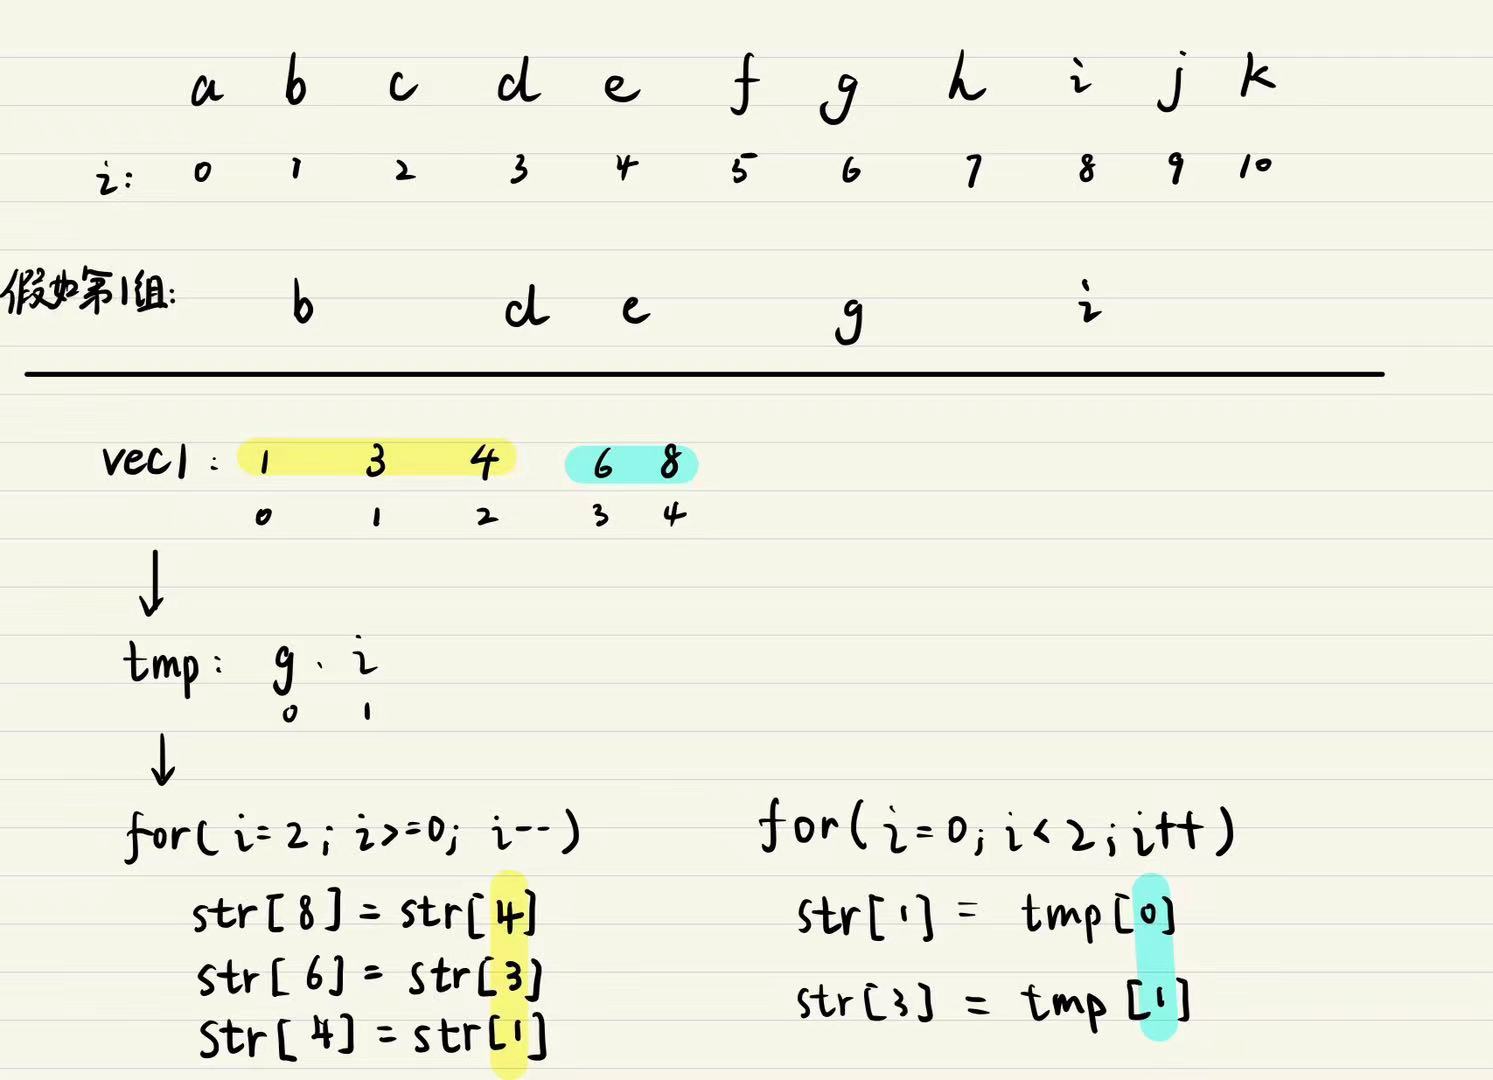 a b c d e f g h i j k
i: 0 1 2 3 4 5 6 7 8 9 10
假如第1组: b d e g i
vec1: 1 3 4 6 8
0 1 2 3 4
↓
tmp: g、i
0 1
↓
for( i=2; i>=0; i--)
str[8] = str[4]
str[6] = str[3]
str[4] = str[1]
for(i=0; i<2; i++)
str[1] = tmp[0]
str[3] = tmp[1]